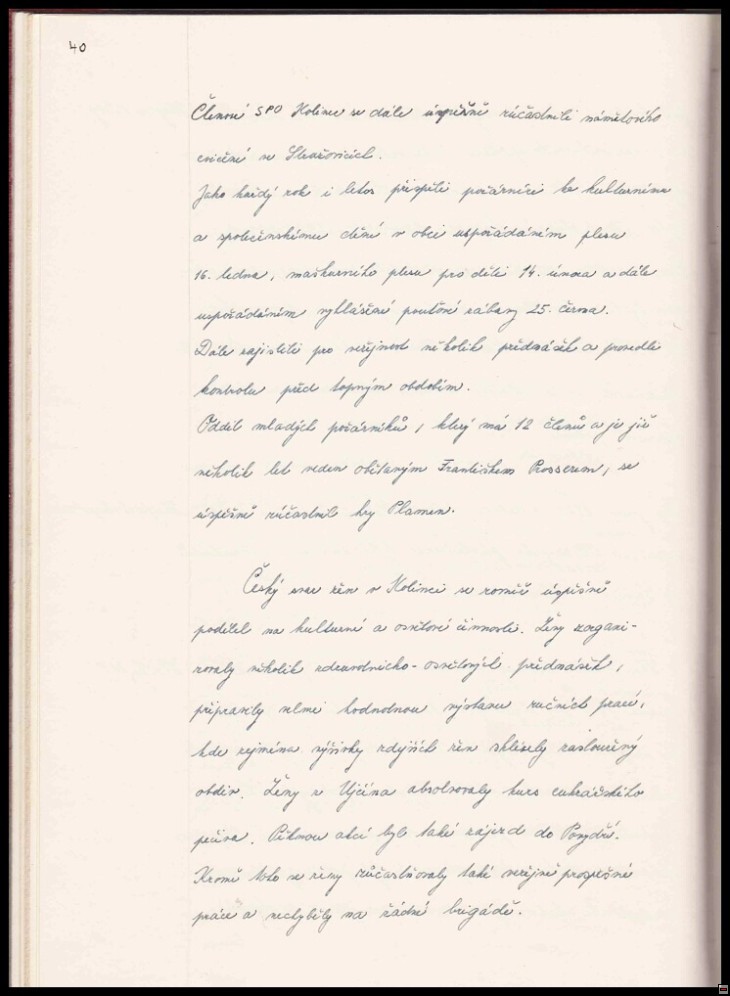 40
Členové SPO Kolinec se dále úspěšně zúčastnili námětového
cvičení ve Strašovicích.
Jako každý rok i letos přispěli požárníci ke kulturnímu
a společenskému dění v obci uspořádáním plesu
16. ledna, maškarního plesu pro děti 14. února a dále
uspořádáním vyhlášené pouťové zábavy 25. června.
Dále zajistili pro veřejnost několik přednášek a provedli
kontrolu před topným obdobím.
Oddíl mladých požárníků, který má 12 členů a je již
několik let veden obětavým Františkem Rosserem, se
úspěšně zúčastnil hry Plamen.
Český svaz žen v Kolinci se rovněž úspěšně
podílel na kulturní a osvětové činnosti. Ženy zorgani-
zovaly několik zdravotnicko-osvětových přednášek,
připravily velmi hodnotnou výstavu ručních prací,
kde zejména výšivky zdejších žen sklízely zasloužený
obdiv. Ženy z Ujčína absolvovaly kurs cukrářského
pečiva. Pěknou akcí byl také zájezd do
Kromě toho se ženy zúčastňovaly také veřejně prospěšné
práce a nechyběly na žádné brigádě.